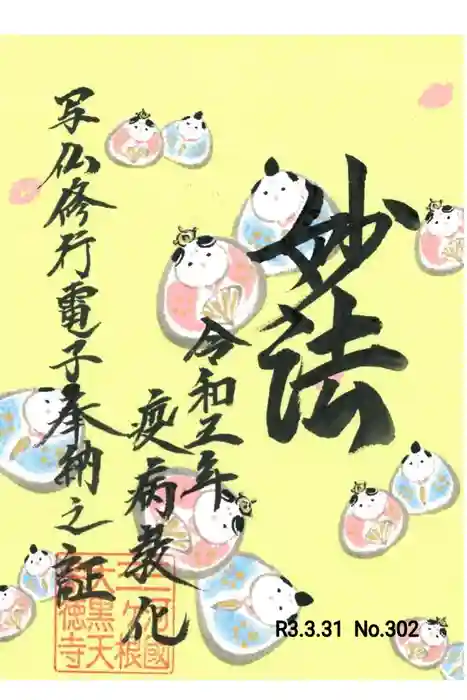 妙法
令和三年
疫病教化
写仏修行電子奉納之証
三河國
三ヶ根
大黒天
徳寺
R3.3.31 No.302